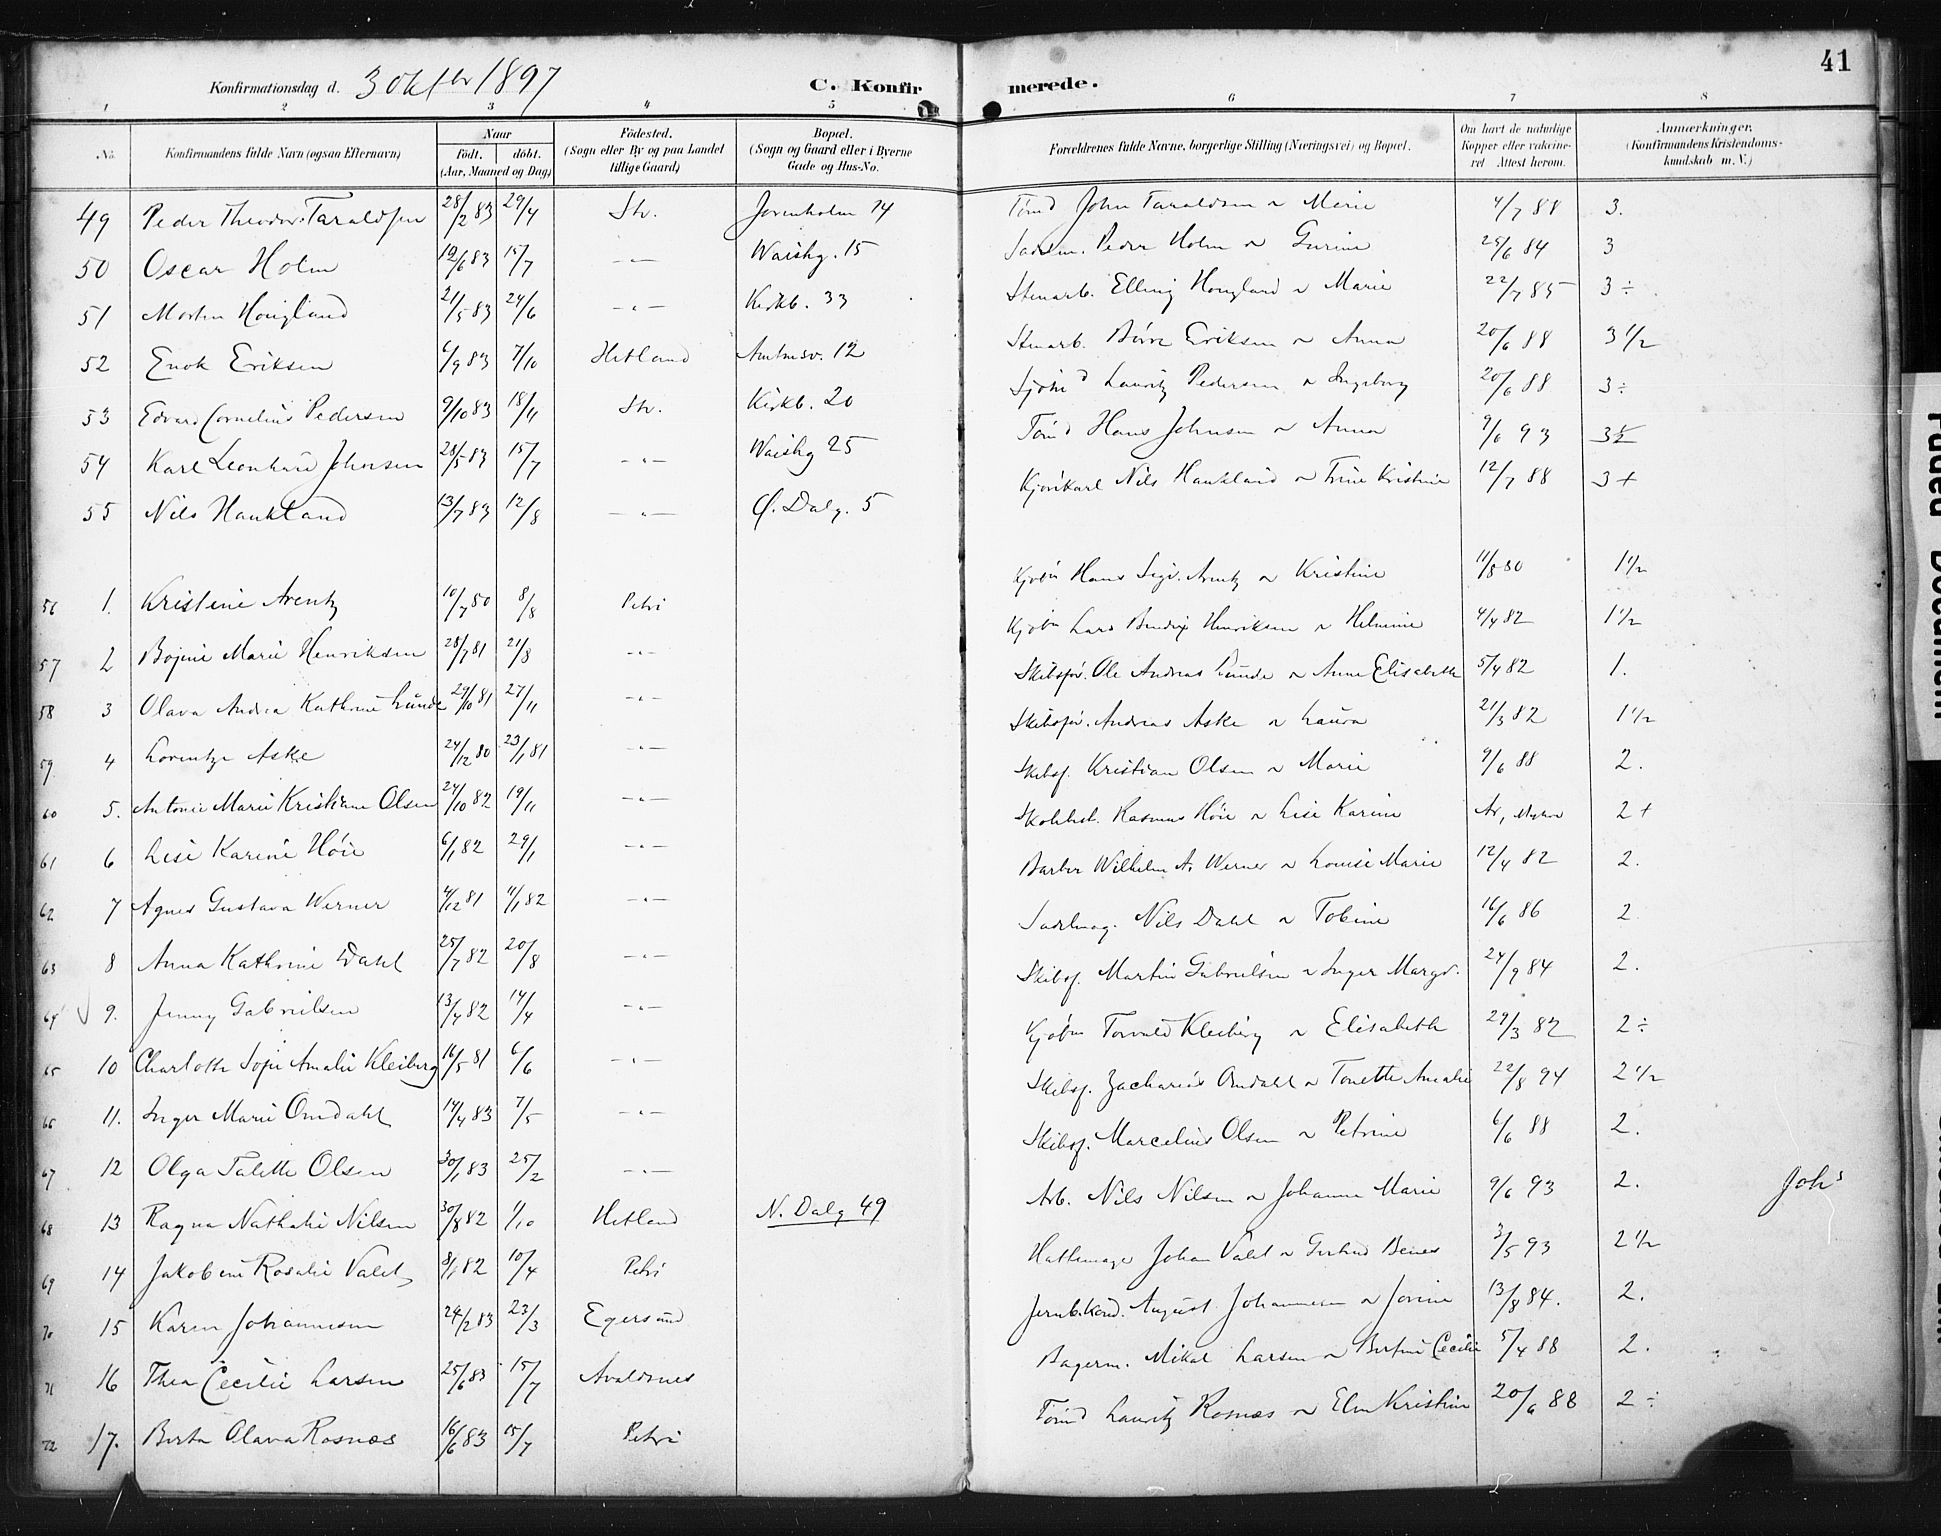 41
Konfirmationsdag d. 3 Oktbr 1897 C. Konfirmerede.
1 2 3 4 5 6 7 8
No. Konfirmandens fulde Navn (ogsaa Efternavn) Naar födt. döbt. (Aar, Maaned og Dag) Födested. (Sogn eller By og paa Landet tillige Gaard) Bopæl. (Sogn og Gaard eller i Byerne Gade og Hus-No. Forældrenes fulde Navne, borgerlige Stilling (Næringsvei) og Bopæl. Om havt de naturlige Kopper eller vakcineret Attest herom. Anmærkninger. (Konfirmandens Kristendomskundskab m. V.)
49 Peder Theodor Taraldsen 28/2 83 29/4 Stv. Jorenholm 14 Tömd John Taraldsen & Marie 4/7 88 3.
50 Oscar Holm 19/6 83 15/7 -"- Waishg. 15 Peder Holm & Gurine 25/6 84 3
51 Morten Hougland 21/5 83 24/6 -"- Kirkb. 33 Stenarb. Elling Hougland & Marie 22/7 85 3 ÷
52 Enok Eriksen 6/9 83 7/10 Hetland Amtmsv. 12 Stenarb. Börre Eriksen & Anna 20/6 88 3 1/2
53 Edvard Cornelius Pedersen 9/10 83 18/11 Stv. Kirkb. 20 Lauritz Pedersen & Ingeborg 20/6 88 3 ÷
54 Karl Leonhard Johnsen 28/5 83 15/7 -"- Waishg 25 Tömd Hans Johnsen & Anna 9/6 93 3 1/2
55 Nils Haukland 13/7 83 12/8 -"- Ö. Dalg. 5 Kjörikarl Nils Haukland & Trine Kristine 12/7 88 3 +
56 1. Kristine Arentz 10/7 80 8/8 Petri Kjöbm Hans Sigv. Arentz & Kristine 11/8 80 1 1/2
57 2 Bojine Marie Henriksen 28/7 81 21/8 -"- Kjöbm Lars Bendix Henriksen & Helmine 4/4 82 1 1/2
58 3 Olava Andrea Kathrine Lunde 29/10 81 27/11 -"- Skibsför. Ole Andreas Lunde & Anne Elisabeth 5/4 82 1.
59 4 Lorentze Aske 24/12 80 23/1 81 -"- Skibsför. Andreas Aske & Laura 21/3 82 1 1/2
60 5. Antonie Marie Kristiane Olsen 24/10 82 19/11 -"- Skibsf. Kristian Olsen & Marie 9/6 88 2.
61 6 Lise Karine Höie 6/1 82 29/1 -"- Rasmus Höie & Lise Karine 2 +
62 7 Agnes Gustava Werner 4/12 81 11/1 82 -"- Barber Wilhelm A. Werner & Louise Marie 12/4 82 2.
63 8 Anna Kathrine Dahl 25/7 82 20/8 -"- Sadelmag. Nils Dahl & Tobine 16/6 86 2
64 9. Jenny Gabrielsen 13/4 82 14/4 -"- Skibsf. Martin Gabrielsen & Inger Margr. 24/9 84 2.
65 10 Charlotte Sofie Amalie Kleiberg 16/5 81 6/6 -"- Kjöbm Torvald Kleiberg & Elisabeth 29/3 82 2 ÷
66 11. Inger Marie Omdahl 14/4 83 7/5 -"- Skibsf. Zacharias Omdahl & Tonette Amalie 22/8 94 2 1/2
67 12 Olga Talette Olsen 30/1 83 25/2 -"- Skibsf. Marcelius Olsen & Petrine 6/6 88 2.
68 13 Ragna Nathalie Nilsen 30/8 82 1/10 Hetland N. Dalg 49 Arb. Nils Nilsen & Johanne Marie 9/6 93 2. Johs
69 14 Jakobine Rosalie Valet 8/1 82 10/4 Petri Hattemager Johan Valet & Gertrud Benes 3/5 93 2 1/2
70 15 Karen Johannesen 24/2 83 23/3 Egersund Jernb.kond. August Johannesen & Jorine 13/8 84. 2.
71 16 Thea Cecilie Larsen 25/6 83 15/7 Avaldsnes Bagerm. Mikal Larsen & Bertine Cecilie 5/4 88 2.
72 17. Berta Olava Rosnæs 16/6 83 15/7 Petri Tömd Lauritz Rosnæs & Elen Kristine 20/6 88 2 ÷